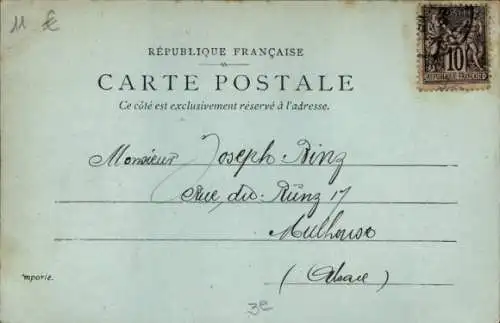 11 €
RÉPUBLIQUE FRANÇAISE
10
CARTE POSTALE
Ce côté est exclusivement réservé à l'adresse.
Monsieur Joseph Binz
Rue du Rünz 17
Mulhouse
(Alsace)
mporie.
3e